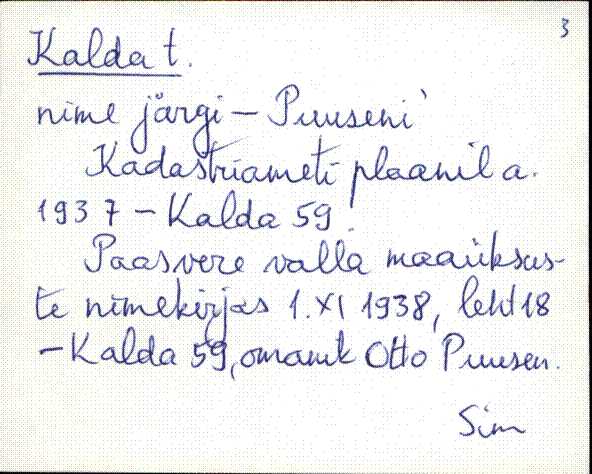 3
Kalda t.
nime järgi – Puuseni
Kadastriameti plaanil a.
1937 – Kalda 59
Paasvere valla maaüksus-
te nimekirjas 1. XI 1938, leht 18
– Kalda 59, omanik Otto Puusen.
Sim